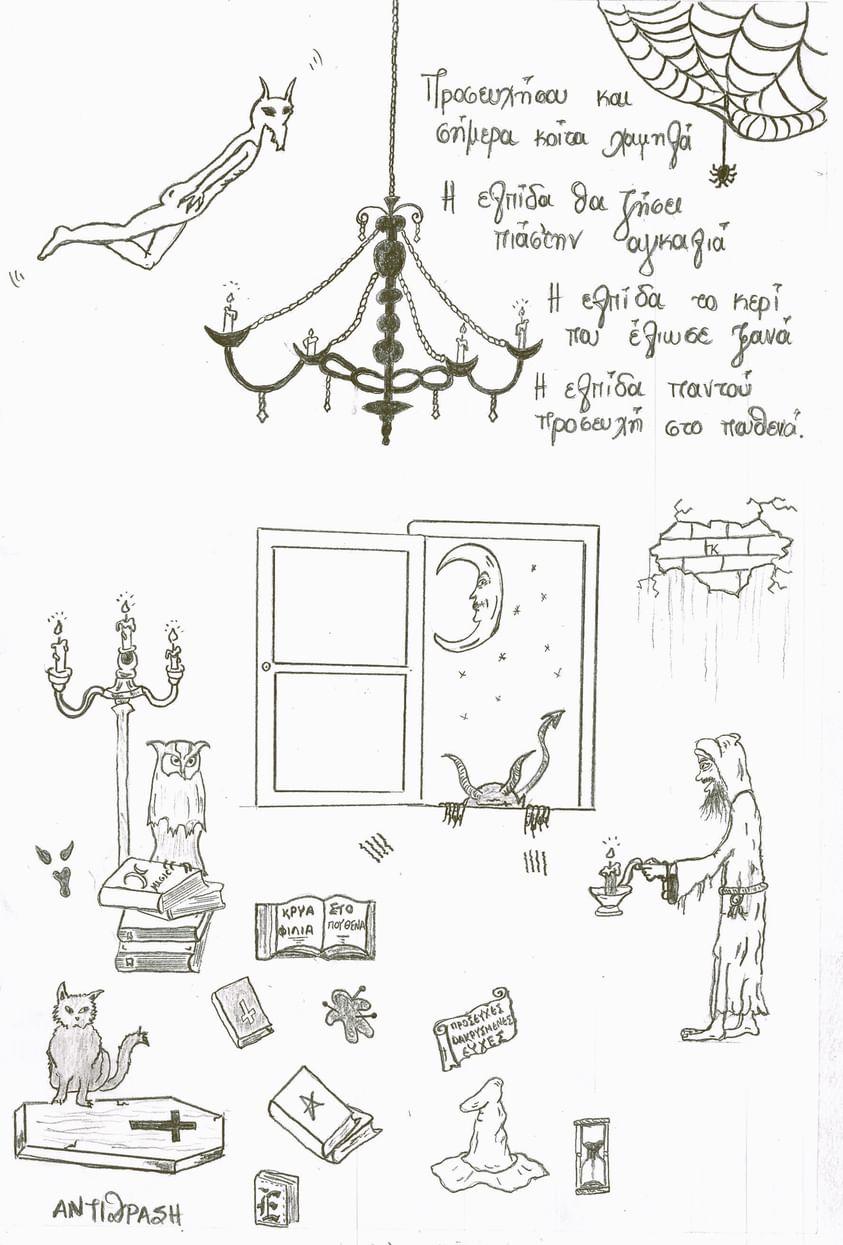 Προσευχήσου και
σήμερα κοίτα χαμηλά
Η ελπίδα θα ζήσει
πιάστην αγκαλιά
Η ελπίδα το κερί
που έλιωσε ξανά
Η ελπίδα παντού
προσευχή στο πουθενά.
MAGIC
ΚΡΥΑ
ΦΙΛΙΑ
ΣΤΟ
ΠΟΥΘΕΝΑ
ΠΡΟΣΕΥΧΕΣ
ΔΑΚΡΥΣΜΕΝΕΣ
ΕΥΧΕΣ
E
ΑΝΤΙδΡΑΣΗ